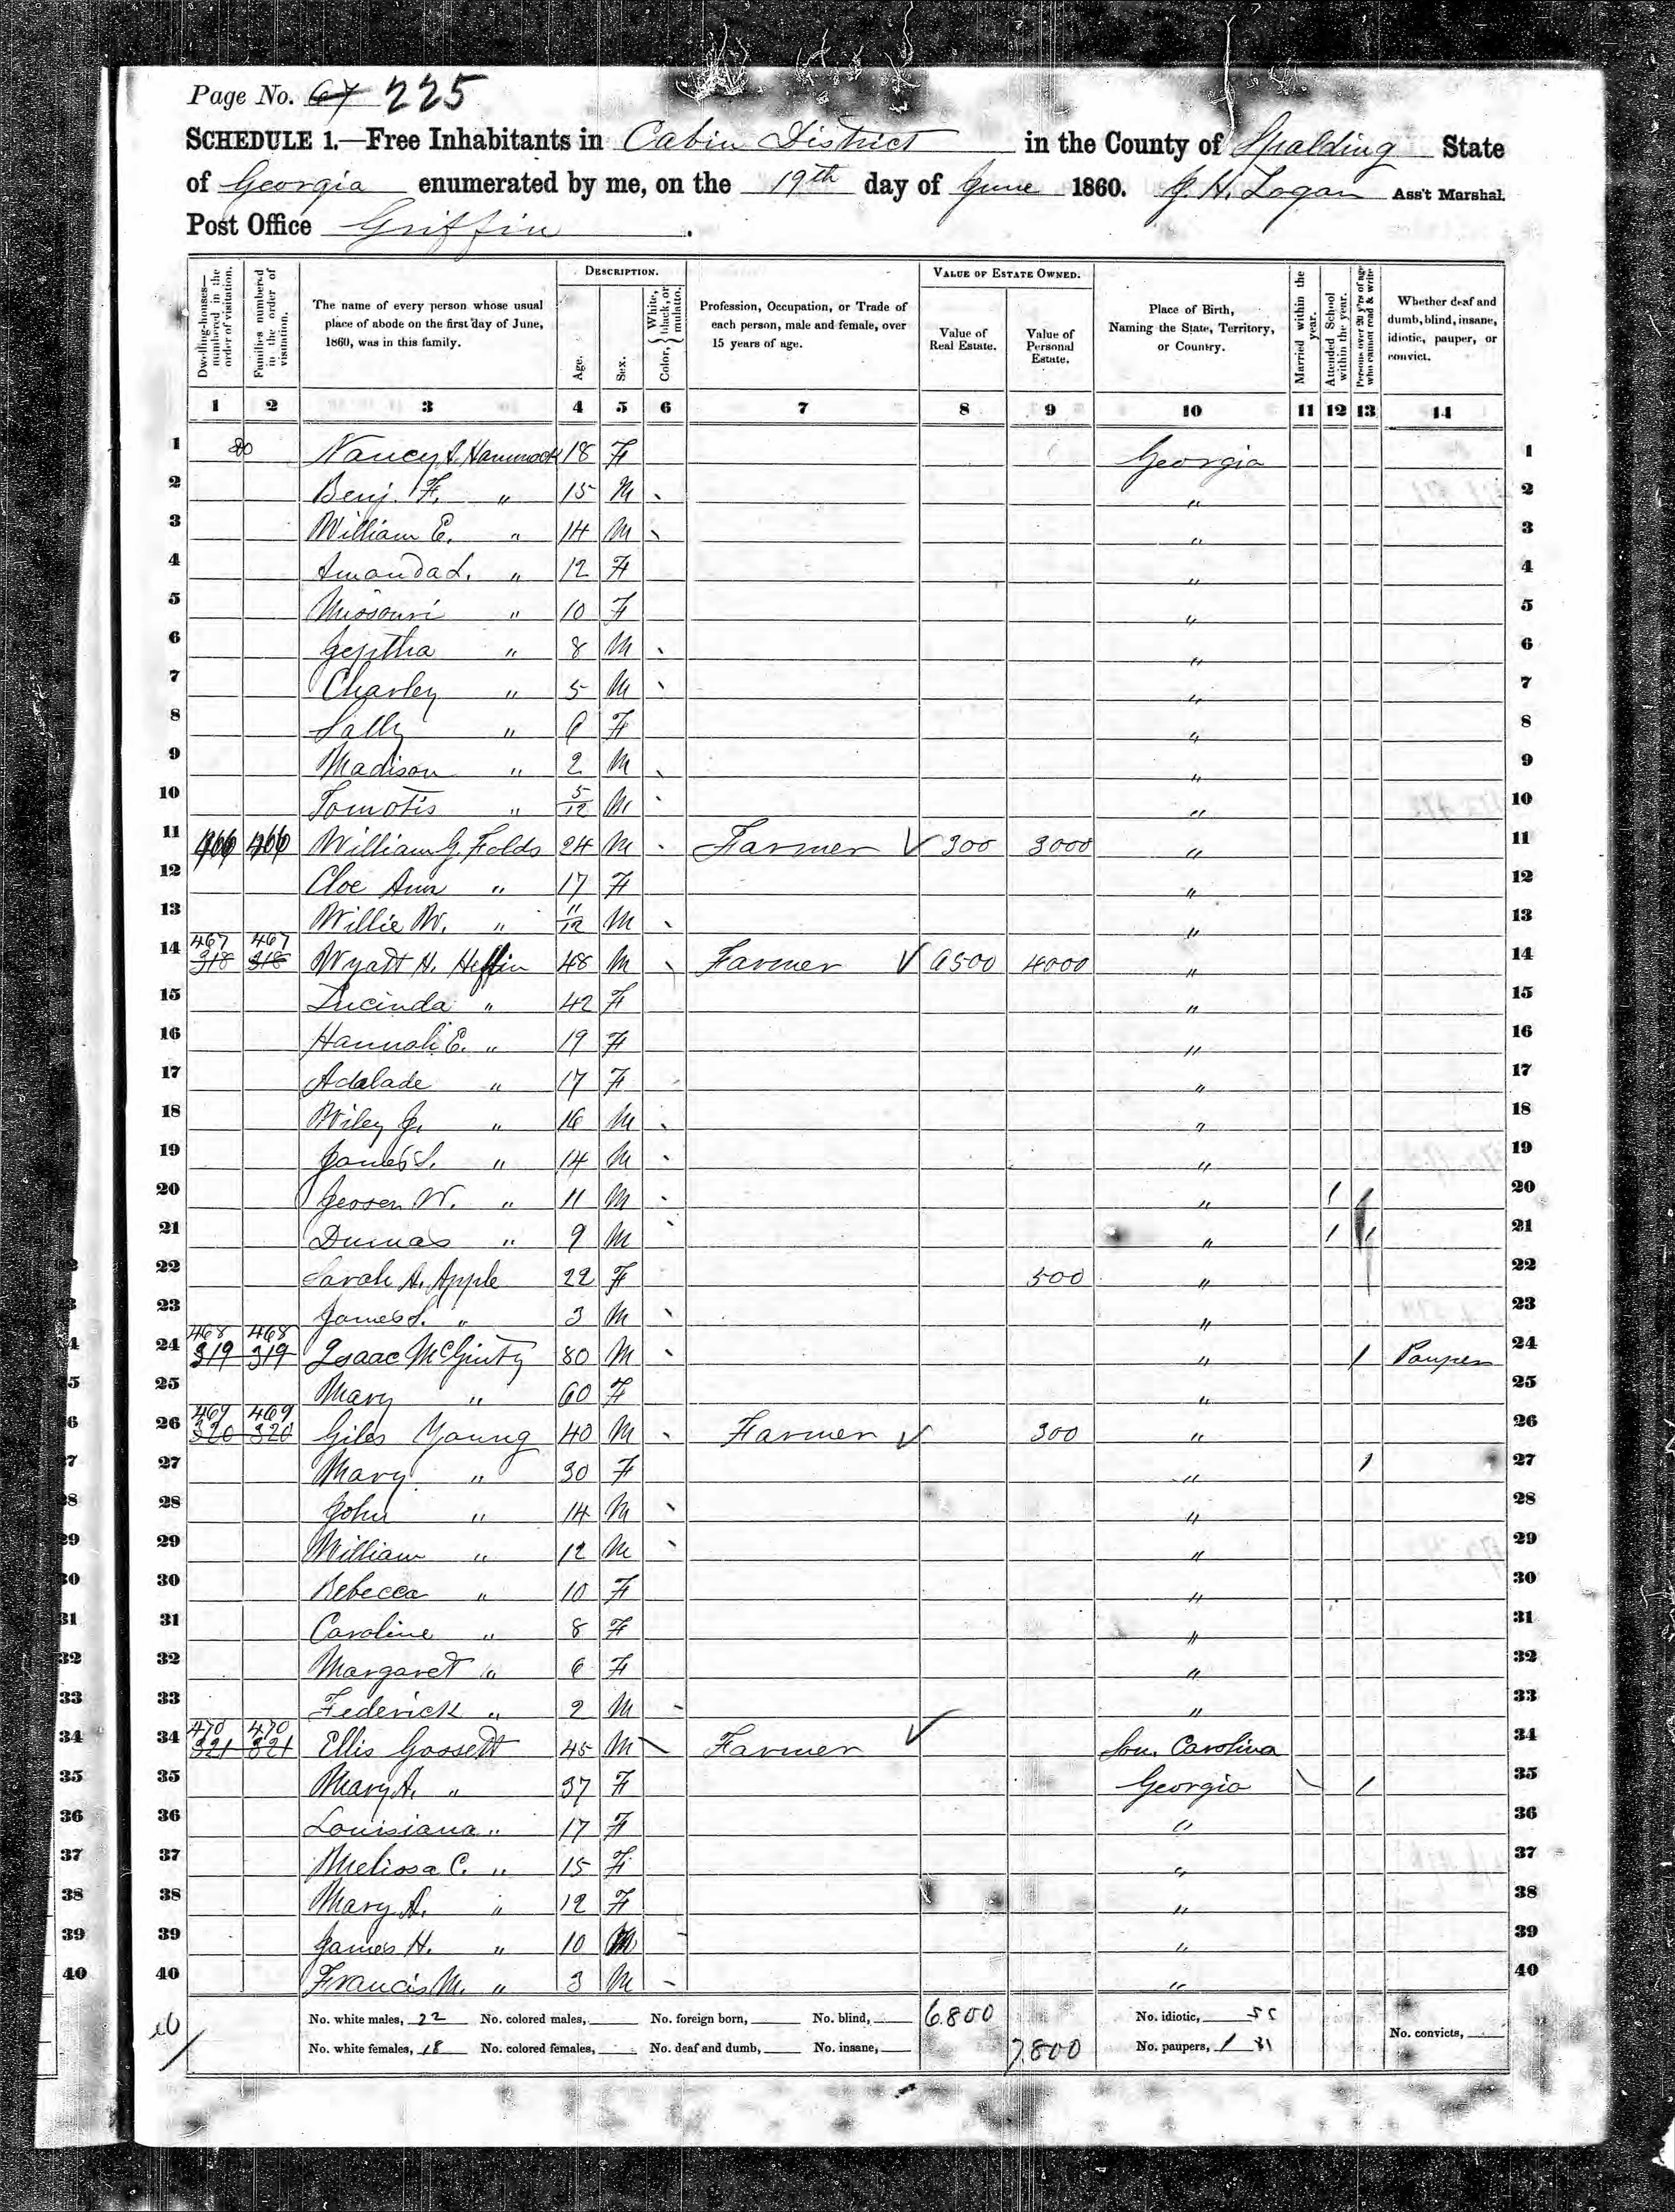 Page No. 67 225
SCHEDULE 1.—Free Inhabitants in Cabin District in the County of Spalding State
of Georgia enumerated by me, on the 19th day of June 1860. J. H. Logan Ass't Marshal.
Post Office Griffin.
Dwelling-houses—numbered in the order of visitation.
Families numbered in the order of visitation.
The name of every person whose usual place of abode on the first day of June, 1860, was in this family.
DESCRIPTION.
Age.
Sex.
Color, } White, black, or mulatto.
Profession, Occupation, or Trade of each person, male and female, over 15 years of age.
VALUE OF ESTATE OWNED.
Value of Real Estate.
Value of Personal Estate.
Place of Birth, Naming the State, Territory, or Country.
Married within the year.
Attended School within the year.
Persons over 20 y'rs of age who cannot read & write
Whether deaf and dumb, blind, insane, idiotic, pauper, or convict.
1 2 3 4 5 6 7 8 9 10 11 12 13 14
1 Nancy A. Hammock 18 F Georgia 1
2 Benj. F. " 15 M " 2
3 William E. " 14 M " 3
4 Amanda L. " 12 F " 4
5 Missouri " 10 F " 5
6 Jeptha " 8 M " 6
7 Charley " 5 M " 7
8 Sally " 6 F " 8
9 Madison " 2 M " 9
10 " 5/12 M " 10
11 466 466 William G. Folds 24 M Farmer 300 3000 " 11
12 Cloe Ann " 17 F " 12
13 Willie W. " 11/12 M " 13
467 467
14 318 318 Wyatt H. Heflin 48 M Farmer 6500 4000 " 14
15 Lucinda " 42 F " 15
16 Hannah E. " 19 F " 16
17 Adalade " 17 F " 17
18 Wiley J. " 16 M " 18
19 James S. " 14 M " 19
20 W. " 11 M " / 20
21 Dumas " 9 M " / / 21
22 Sarah A. Apple 22 F 500 " 22
23 James S. " 3 M " 23
468 468
24 319 319 Isaac McGinty 80 M " / Pauper 24
25 Mary " 60 F " 25
469 469
26 320 320 Giles Young 40 M Farmer 300 " 26
27 Mary " 30 F " / 27
28 John " 14 M " 28
29 William " 12 M " 29
30 Rebecca " 10 F " 30
31 Caroline " 8 F " 31
32 Margaret " 6 F " 32
33 Federick " 2 M " 33
470 470
34 321 321 Ellis Gossett 45 M Farmer Sou. Carolina 34
35 Mary A. " 37 F Georgia / 35
36 Louisiana " 17 F " 36
37 Melissa C. " 15 F " 37
38 Mary A. " 12 F " 38
39 James H. " 10 M " 39
40 Francis M. " 3 M " 40
No. white males, 22 No. colored males, No. foreign born, No. blind, 6.800 No. idiotic, No. convicts,
No. white females, 18 No. colored females, No. deaf and dumb, No. insane, 7.800 No. paupers, 1